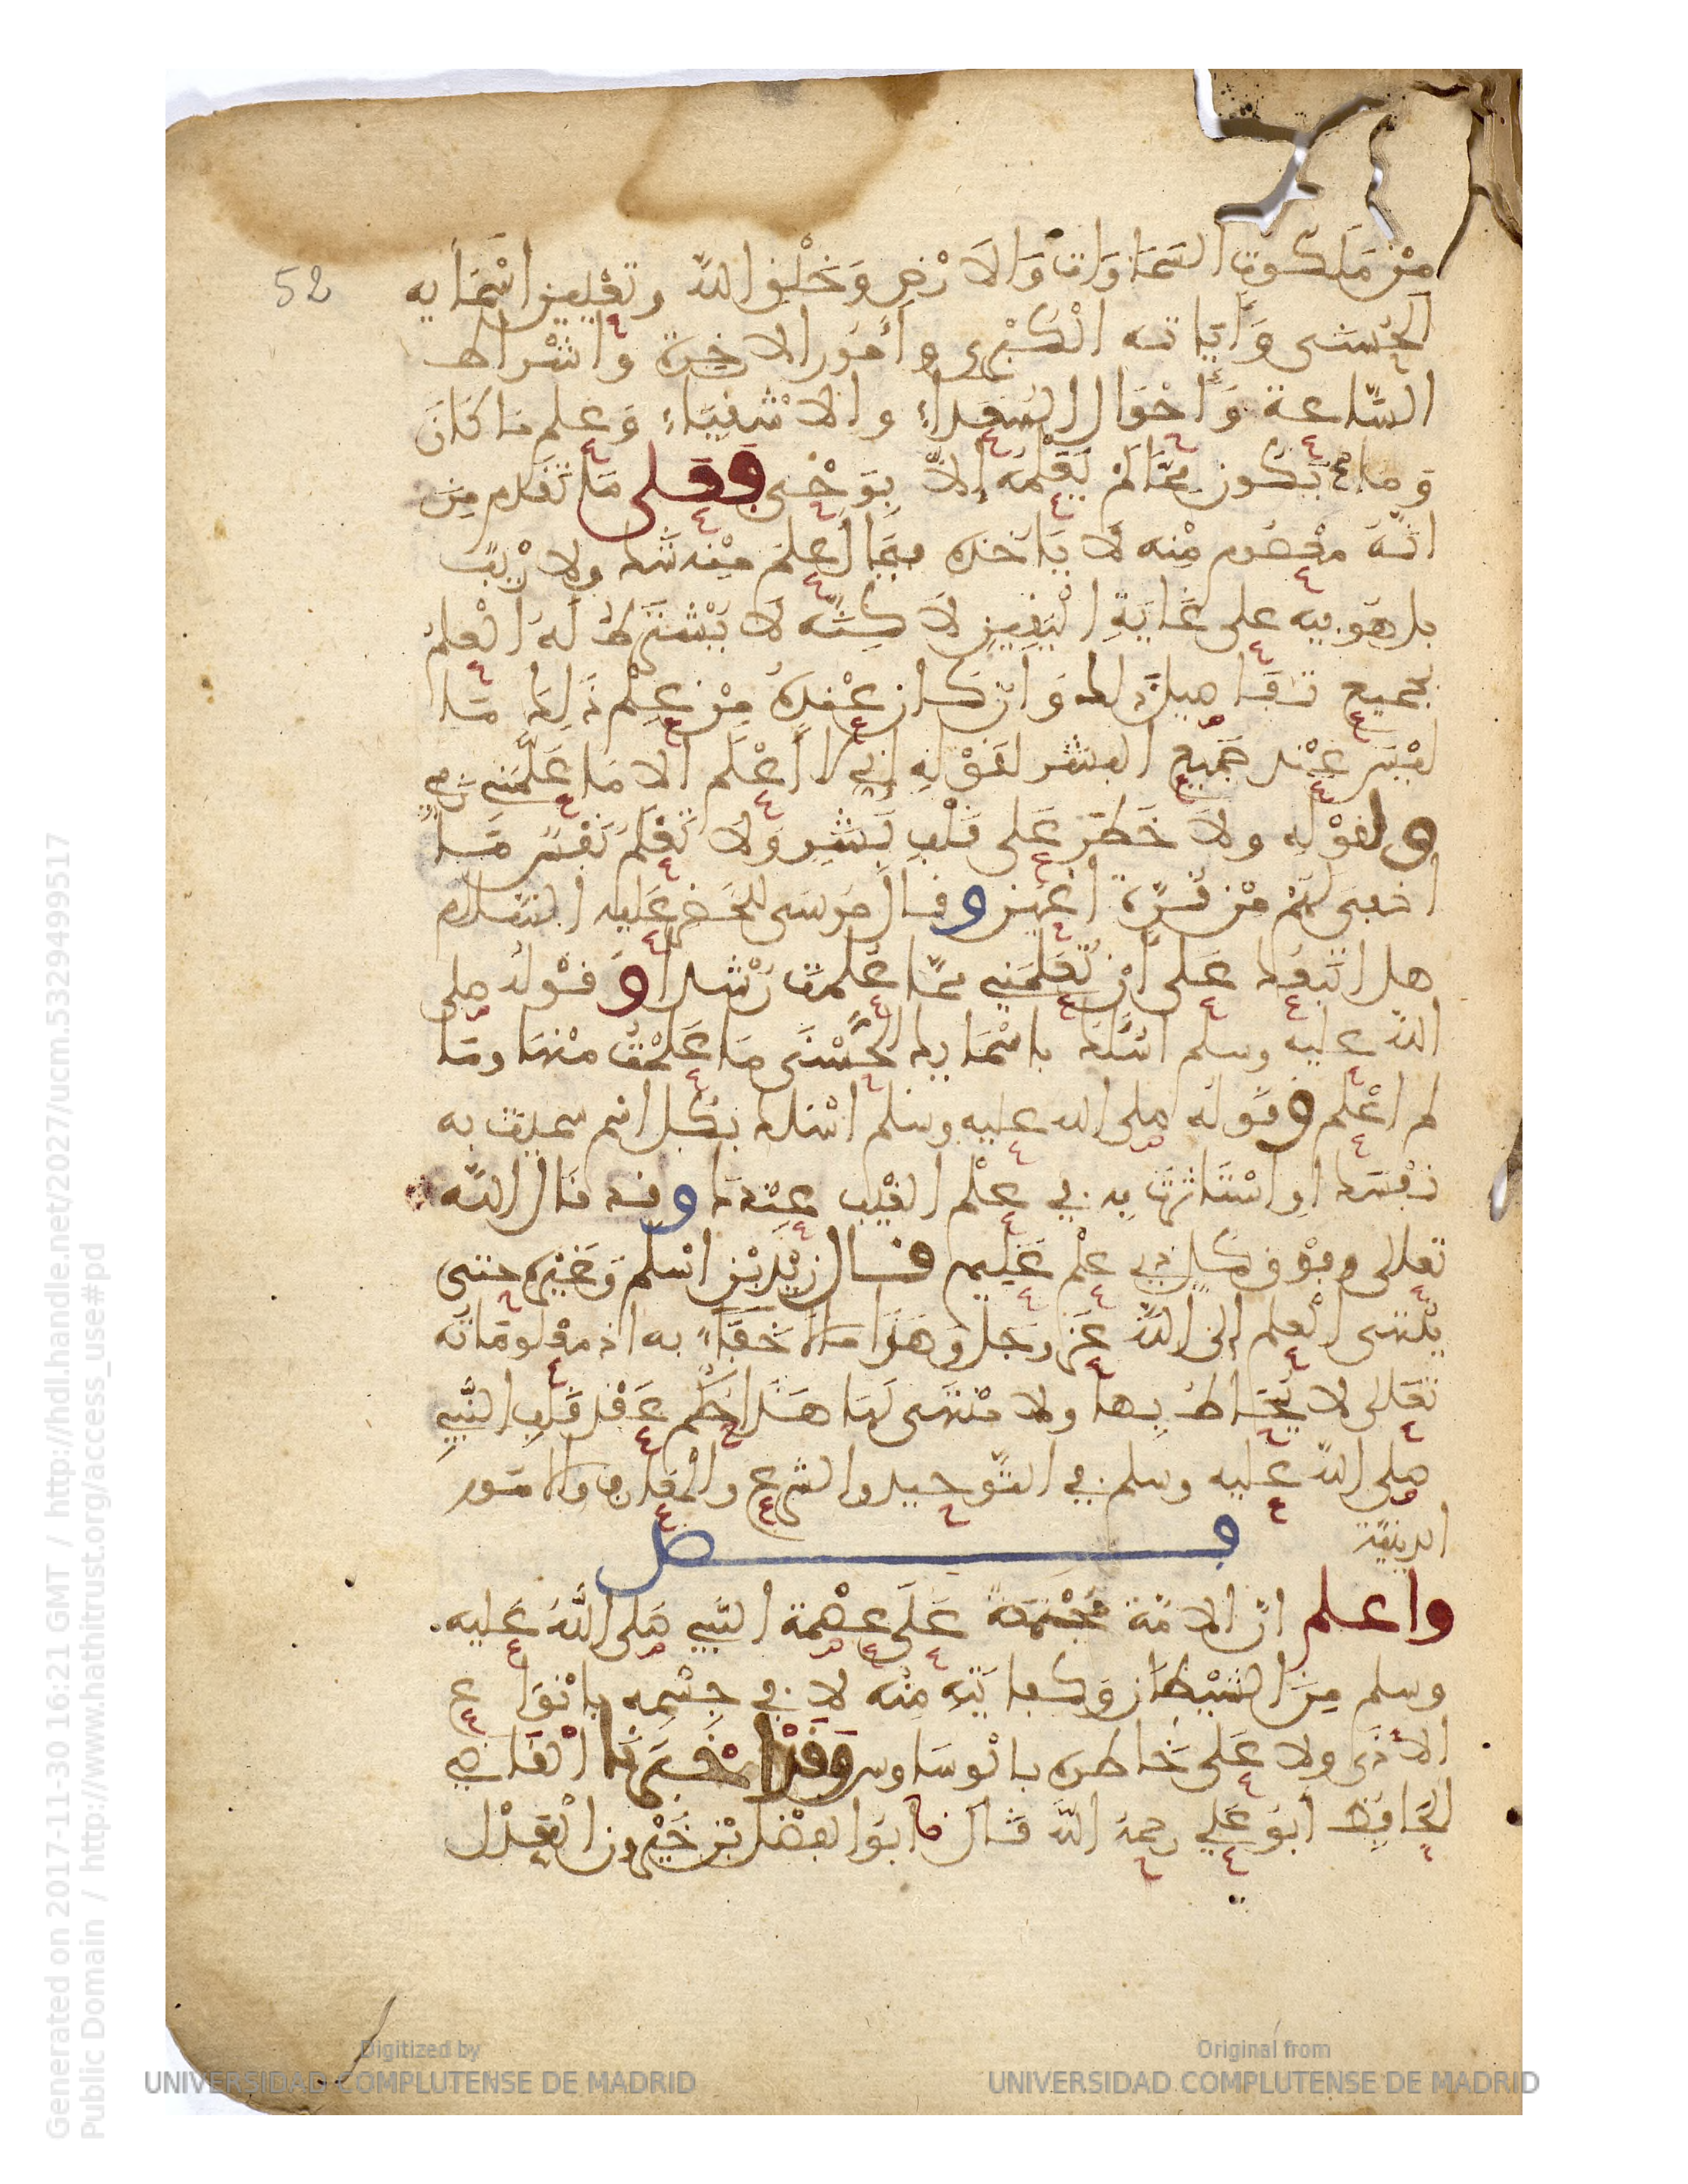 من ملكوت السماوات والارض وخلق الله وتعيين اسمايه
52
الحسنى واياته الكبرى وامور الاخرة واشراط
الساعة واحوال السعداء والاشقياء وعلم ما كان
وما يكون مما لم يعلمه الا بوحي فعلى ما تقدم من
انه معصوم منه لا ياخذه فيما اعلم منه شك ولا ريب
بل هو فيه على غاية اليقين لاكنه لا يشترط له العلم
بجميع تفاصيل ذلك وان كان عنده من علم ذلك ما
ليس عند جميع البشر لقوله اني لا اعلم الا ما علمني ربي
ولقوله ولا خطر على قلب بشر ولا تعلم نفس ما
اخفي لهم من قرة اعين وقال موسى للخضر عليه السلام
هل اتبعك على ان تعلمني مما علمت رشدا وقوله صلى
الله عليه وسلم اسئلك باسمايك الحسنى ما علمت منها وما
لم اعلم وقوله صلى الله عليه وسلم اسئلك بكل اسم سميت به
نفسك او استاثرت به في علم الغيب عندك وقد قال الله
تعالى وفوق كل ذي علم عليم قال زيد بن اسلم وغيره حتى
ينتهى العلم الى الله عز وجل وهذا ما لا خفاء به اذ معلوماته
تعالى لا يحاط بها ولا منتهى لها هذا حكم عقد قلب النبي
صلى الله عليه وسلم في التوحيد والشرع والمعارف والامور
الدينية
فصل
واعلم ان الامة مجتمعة على عصمة النبي صلى الله عليه
وسلم من الشيطان وكفايته منه لا في جسمه بانواع
الاذى ولا على خاطره بالوساوس وقد اخبرنا القاضي
الحافظ ابو علي رحمه الله قال نا ابو الفضل بن خيرون العدل
Generated on 2017-11-30 16:21 GMT / http://hdl.handle.net/2027/ucm.5329499517
Public Domain / http://www.hathitrust.org/access_use#pd
Digitized by
UNIVERSIDAD COMPLUTENSE DE MADRID
Original from
UNIVERSIDAD COMPLUTENSE DE MADRID